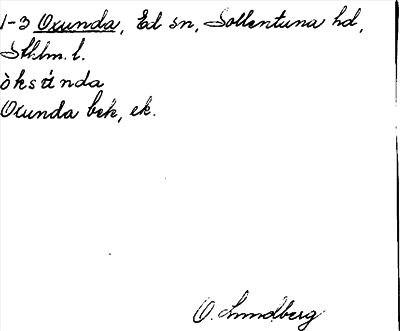 1-3 Oxunda, Ed sn, Sollentuna hd,
Sthlm. l.
òksúnda
Oxunda bek, ek.
O. Lundberg